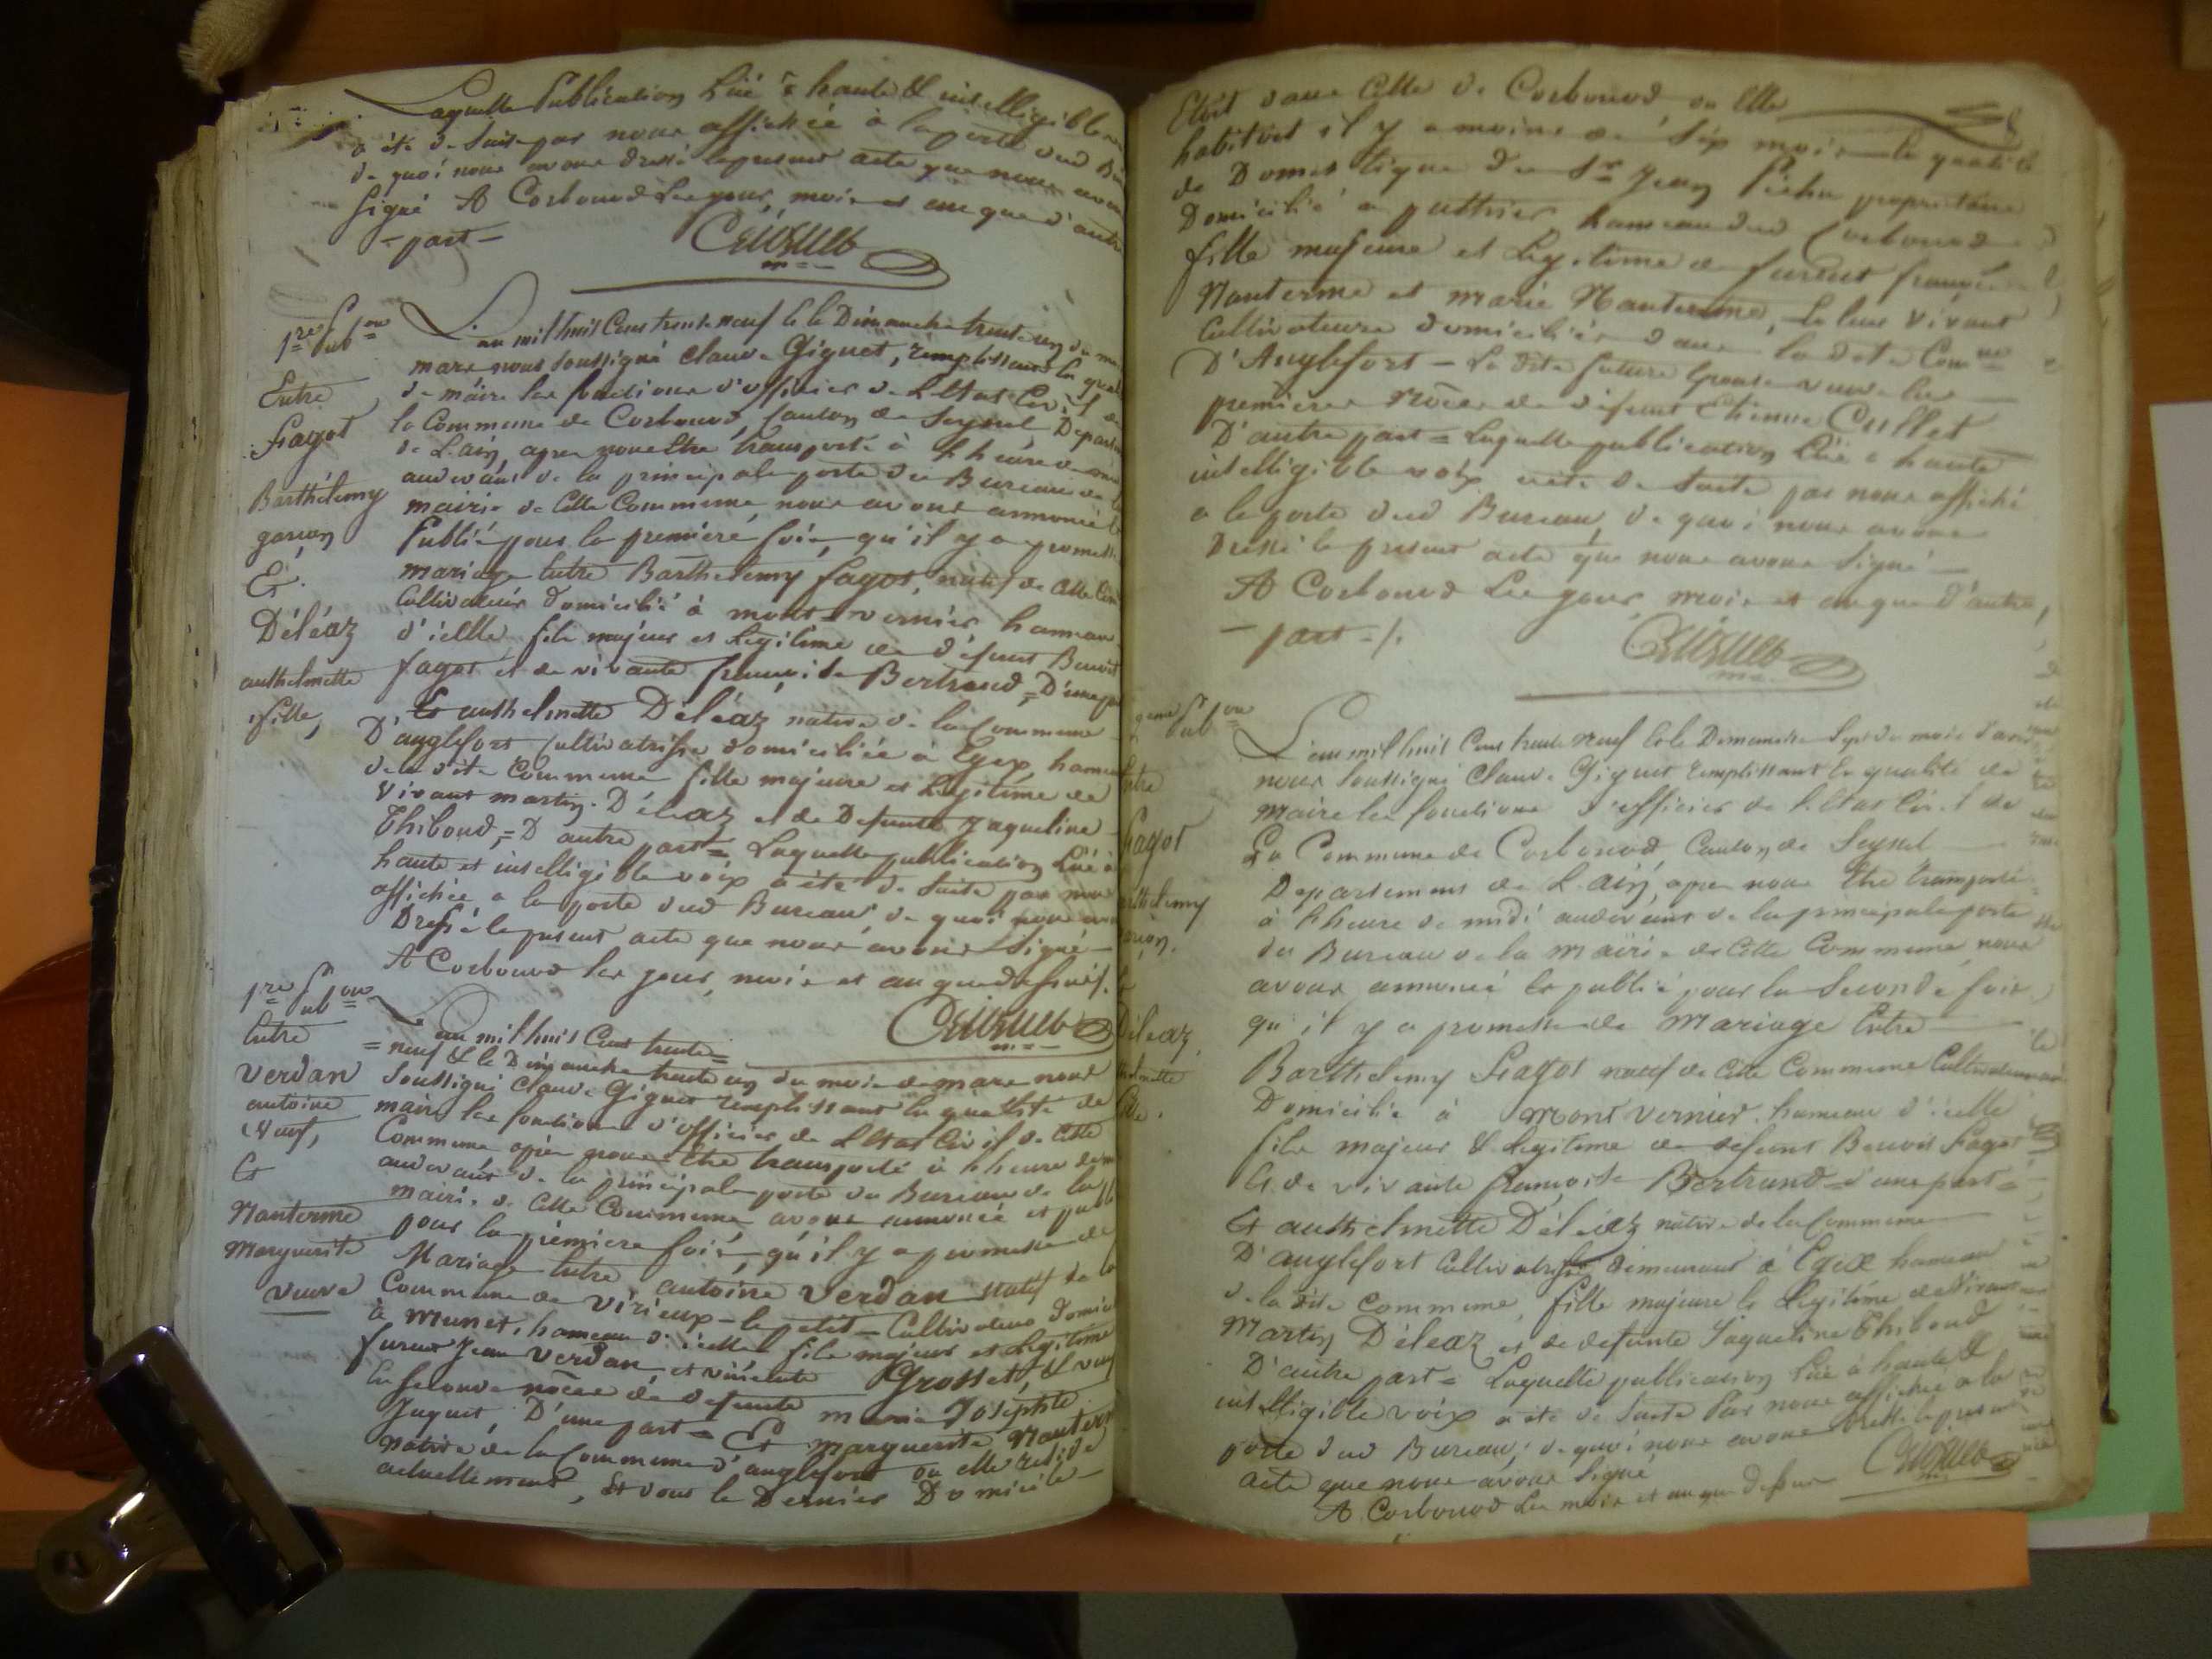 Laquelle Publication Lüe à haute & intelligible
a été de suite par nous affichée à la porte dud
de quoi nous avons dressé le present acte que nous avons
signé A Corbonod Les jour, mois et an que d'autre
- part -
1re Pub.on
Entre
Fagot
Barthélemy
garçon
Et
Déléaz
anthelmette
fille,
L'an mil huit Cent trente neuf & le Dimanche trente un du
mars nous soussigné Claude Giguet, remplissant la
de maire les fonctions d'officier de L'Etat Civil de
la Commune de Corbonod, Canton de Seyssel, Depart
de L'ain, apres nous être transporté à L'heure de
audevant de la principale porte du Bureau de
mairie de Cette Commune, nous avons annoncé &
Publié pour la première fois, qu'il y a promesse
mariage Entre Barthelemy Fagot, natif de Cette
Cultivateur domicilié à mont-vernier hameau
d'icelle, fils majeur et Légitime de défunt Benoit
Fagot et de vivante françoise Bertrand = D'une part
Et anthelmette Déléaz native de la Commune
D'anglefort Cultivatrisse domiciliée à Egex hameau
de la dite Commune fille majeure et Légitime de
Vivant martin Déléaz et de Defunte Jaqueline
Thiboud, = D'autre part = Laquelle publication Lüe à
haute et intelligible voix a été de suite par nous
affichée a la porte dud Bureau de quoi nous
Dressé le present acte que nous avons Signé -
A Corbonod les jour, mois et an que dessus.
1re Pub.on
Entre
Verdan
antoine
Veuf,
Et
Nanterme
Marguerite
veuve
L'an mil huit Cent trente =
= neuf & le Dimanche trente un du mois de mars nous
Soussigné Claude Giguet remplissant la qualité de
maire les fonctions d'officier de L'Etat Civil de Cette
Commune, après nous être transporté à L'heure de
audevant de la principale porte du Bureau de la
mairie de Cette Commune, avons annoncé et publié
pour la première fois, qu'il y a promesse de
Mariage Entre antoine Verdan natif de la
Commune de Virieux-le-petit = Cultivateur domici
à Munet, hameau d'icelle fils majeur et Légitime
furent Jean Verdan et Grosset, & veuf
En seconde nôces de defunte marie Josephte
Juguet, D'une part = Et marguerite Nanterme
native de la Commune d'anglefort ou elle reside
actuellement, Et dont le Dernier Domicile -
Etoit dans Celle de Corbonod, ou Elle
habitoit il y a moins de Six mois en qualité
de Domestique du Sr Jean Pichu propriétaire
Domicilié a puthier hameau dud Corbonod
fille majeure et Légitime de furent françois
Nanterme et marie Nanterme, En leur vivant
Cultivateurs domiciliés dans la dite Comne
D'Anglefort - La dite future Epouse veuve En
premières Nôces de défunt Etienne Cullet
D'autre part = Laquelle publication Lüe a haute
intelligible voix a été de suite par nous affiché
a la porte dud Bureau, de quoi nous avons
Dressé le present acte que nous avons Signé -
A Corbonod Les jour, mois et an que d'autre,
- part - /.
2eme Pub.on
Entre
Fagot
Barthelemy
garçon.
Et
Déléaz
anthelmette
fille.
L'an mil huit Cent trente Neuf & le Dimanche Sept du mois d'avril
nous soussigné Claude Giguet remplissant la qualité de
maire les fonctions d'officier de L'Etat Civil de
La Commune de Corbonod, Canton de Seyssel
Departement de L'ain, apres nous être transporté
à L'heure de midi audevant de la principale porte
du Bureau de la mairie de Cette Commune, nous
avons annoncé & publié pour la Seconde fois
qu'il y a promesse de Mariage Entre
Barthelemy Fagot natif de Cette Commune Cultivateur
Domicilié à Mont Vernier hameau d'icelle
fils majeur & Légitime de defunt Benoit Fagot
Et de vivante françoise Bertrand = d'une part =
Et anthelmette Déléaz native de la Commune
D'anglefort Cultivatrisse demeurant à Egex hameau
de la dite Commune, fille majeure & Légitime de Vivant
Martin Déléaz et de defunte Jaqueline Thiboud
D'autre part = Laquelle publication Lüe à haute &
intelligible voix a été de suite Par nous affichée a la
porte dud Bureau; de quoi nous avons Dressé le present
acte que nous avons Signé
A Corbonod Les mois et an que dessus